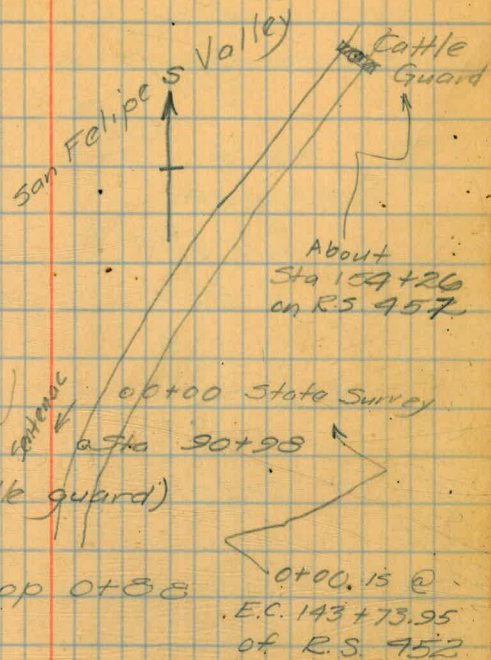 San Felipe S Valley
Cattle
Guard
About
Sta 154+26
on R.S. 457
Sentenac
00+00 State Survey
@ Sta 90+98
le guard)
op 0+88
0+00.15 @
E.C. 143+73.95
of R.S. 452